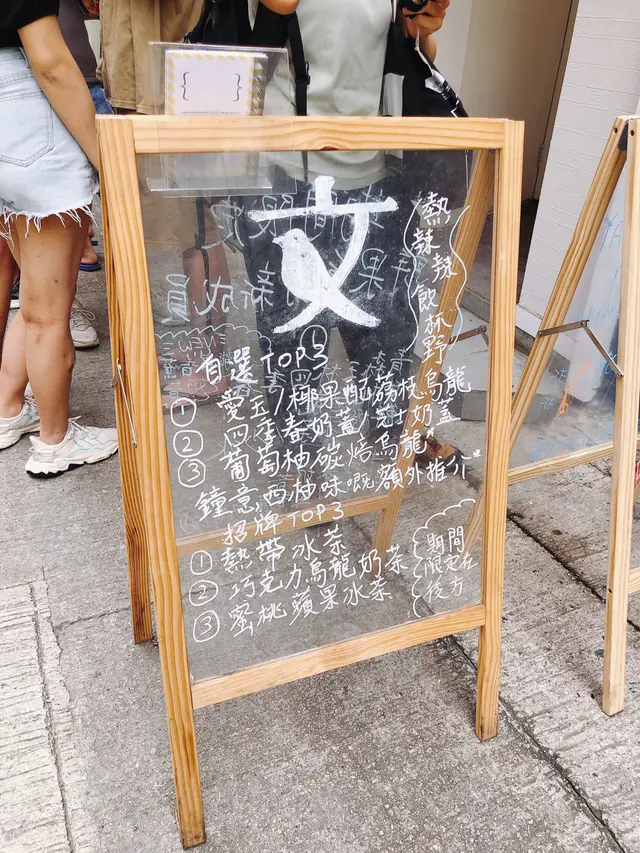 { }
文
熱辣辣
飲杯野
首選TOP3
① 愛玉/椰果配荔枝烏龍
② 四季春奶蓋/芝士奶蓋
③ 葡萄柚碳焙烏龍*
鐘意西柚味嘅額外推介*
招牌TOP3
① 熱帶冰茶
② 巧克力烏龍奶茶
③ 蜜桃蘋果冰茶
期間
限定在
後方
新成員